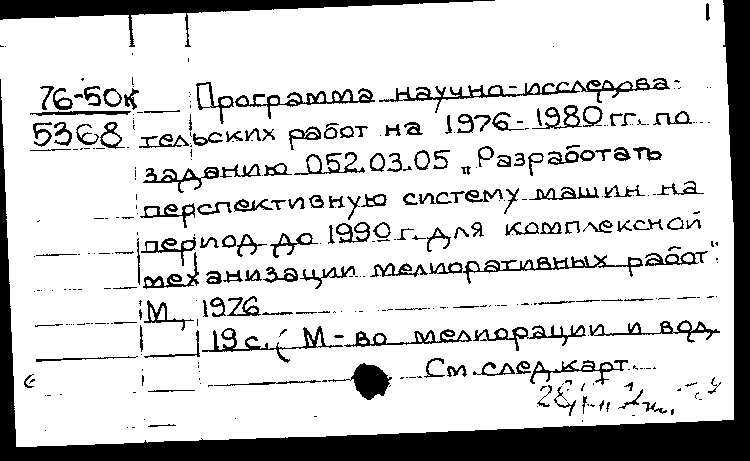 76-50к Программа научно-исследова-
5368 тельских работ на 1976-1980 гг. по
заданию 052.03.05 „Разработать
перспективную систему машин на
период до 1990 г. для комплексной
механизации мелиоративных работ".
М., 1976
19 с. (М-во мелиорации и вод.
См. след. карт.